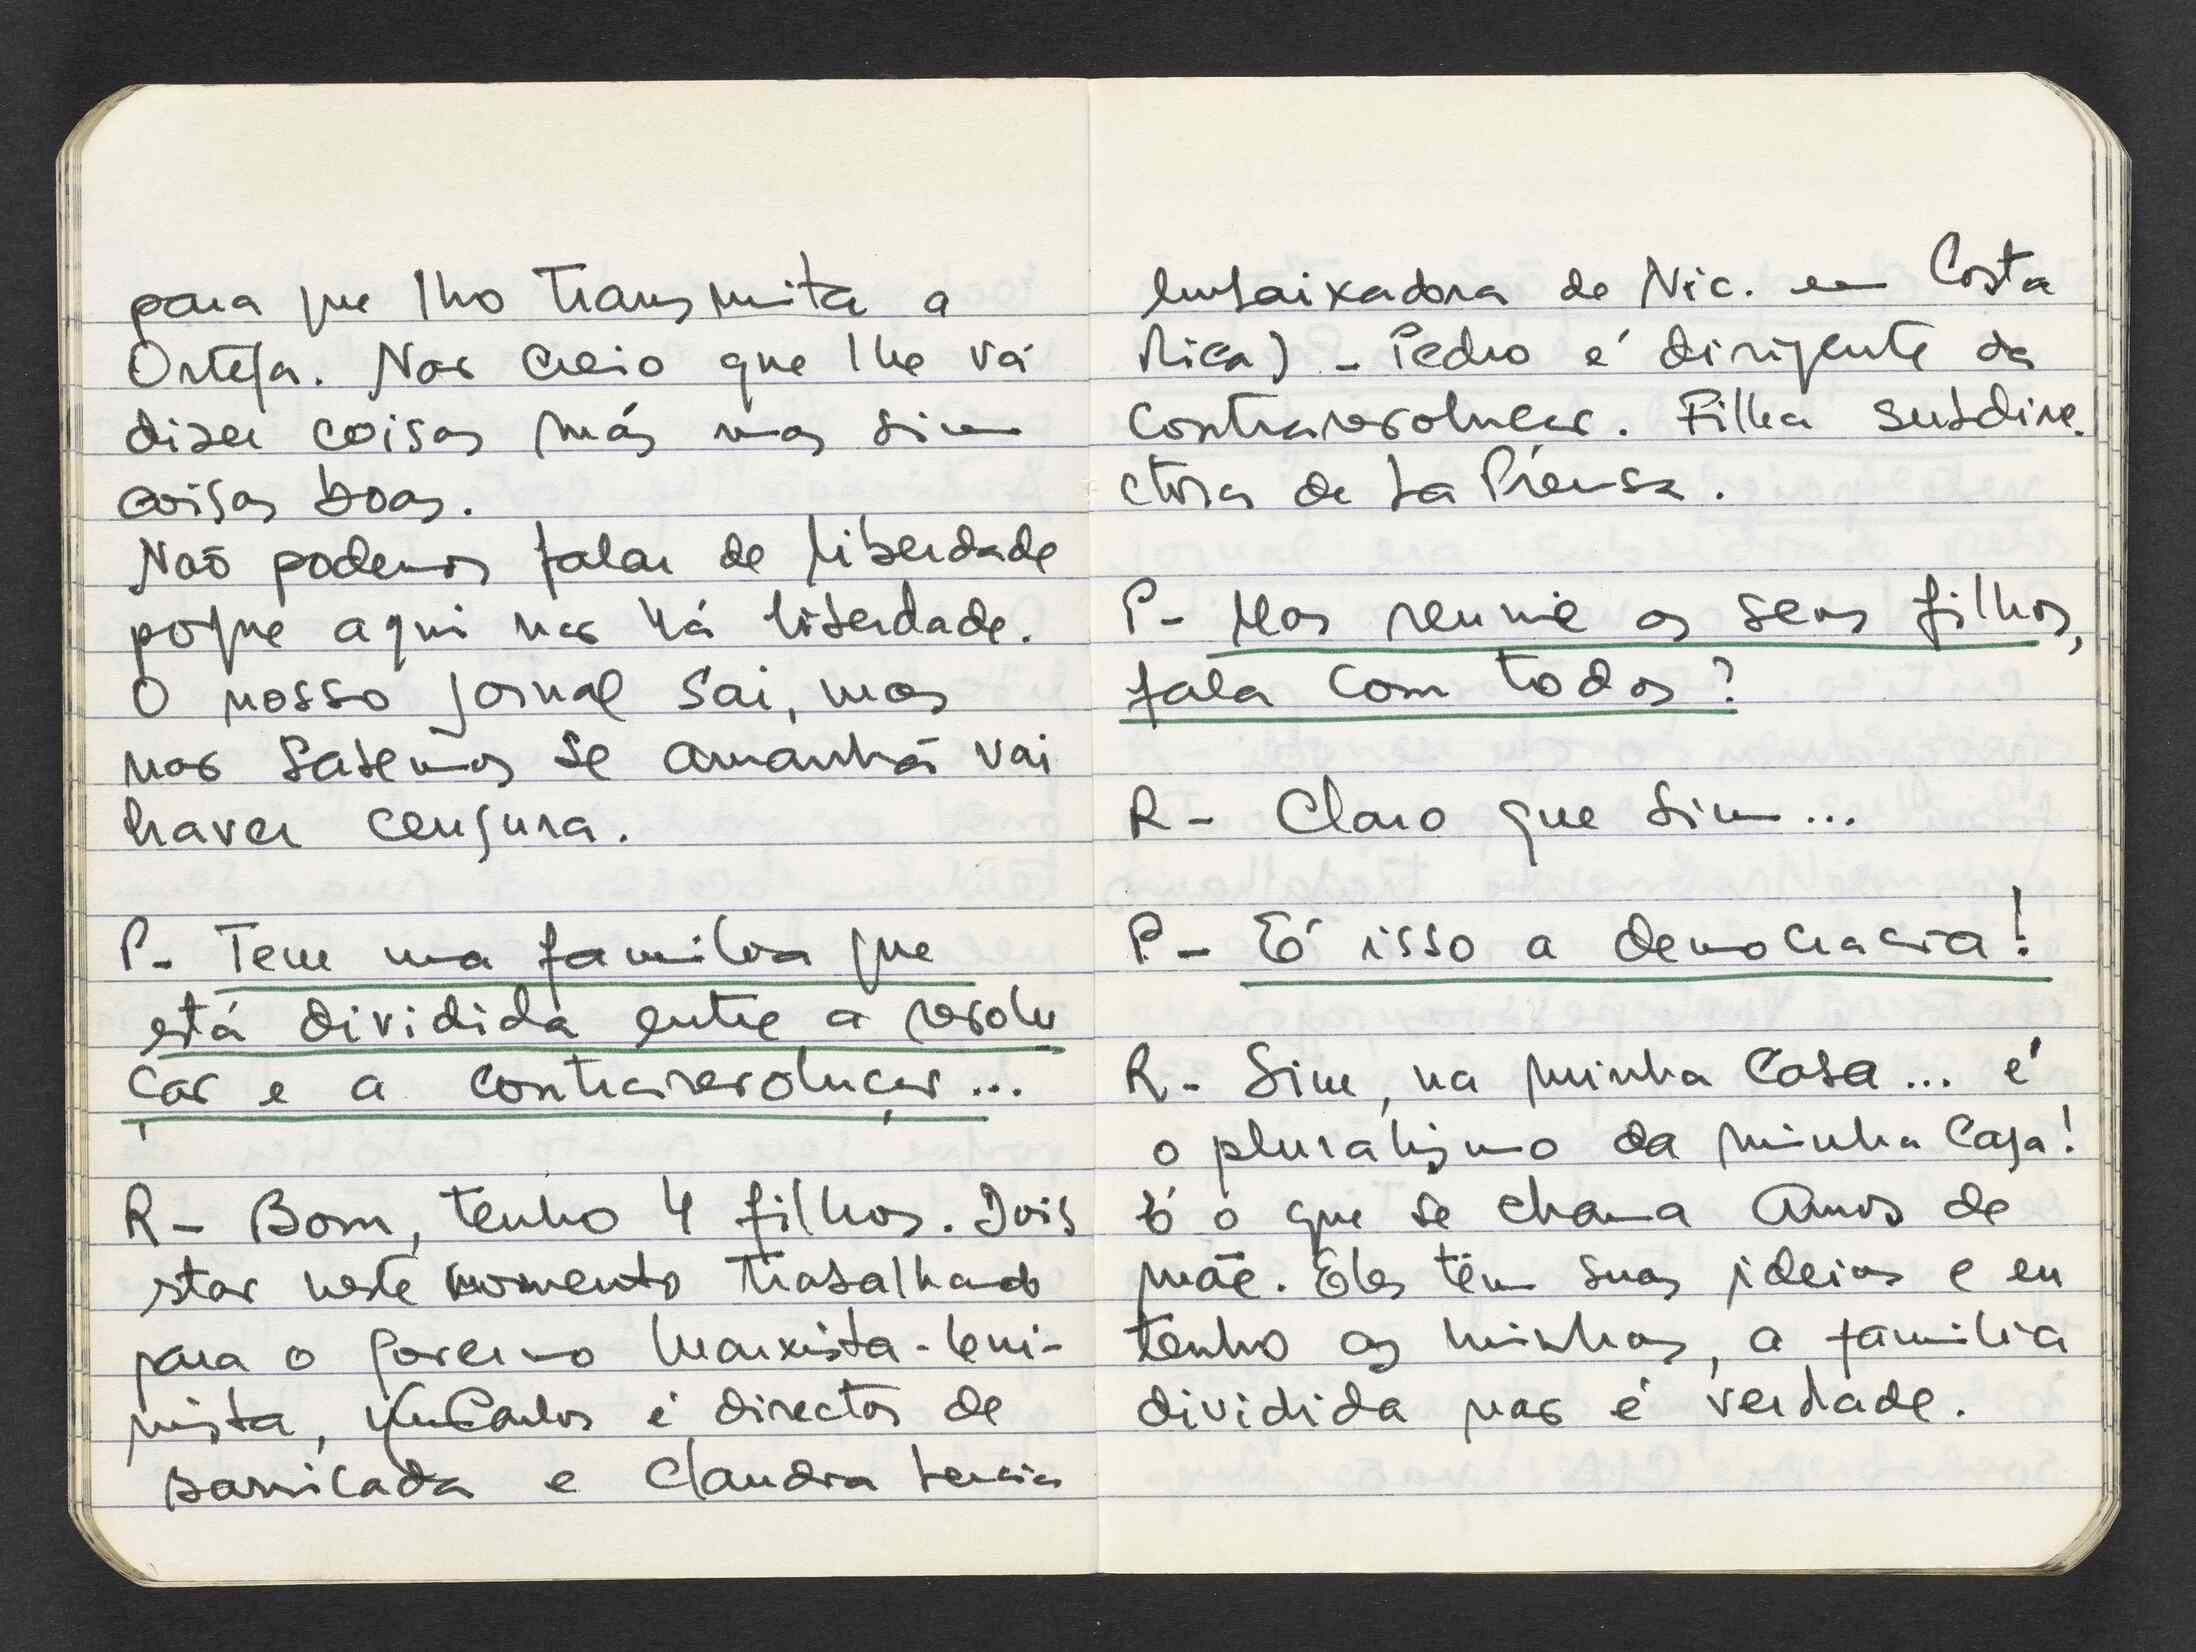 para que lho transmita a
Ortega. Não creio que lhe vá
dizer coisas más mas sim
coisas boas.
Não podemos falar de liberdade
porque aqui não há liberdade.
O nosso jornal sai, mas
não sabemos se amanhã vai
haver censura.
P- Tem uma família que
está dividida entre a revolu
ção e a contrarevolução...
R- Bom, tenho 4 filhos. Dois
estão neste momento trabalhando
para o governo marxista-leni-
nista, Carlos é director de
barricada e Claudia Lucia
embaixadora de Nic. em Costa
Rica) - Pedro é dirigente da
contrarevolução. Filha subdire.
ctora de La Prensa.
P- Mas reune os seus filhos,
fala com todos?
R- Claro que sim...
P- É isso a democracia!
R- Sim, na minha casa... é
o pluralismo da minha casa!
É o que se chama Amor de
mãe. Eles têm suas ideias e eu
tenho as minhas, a família
dividida não é verdade.